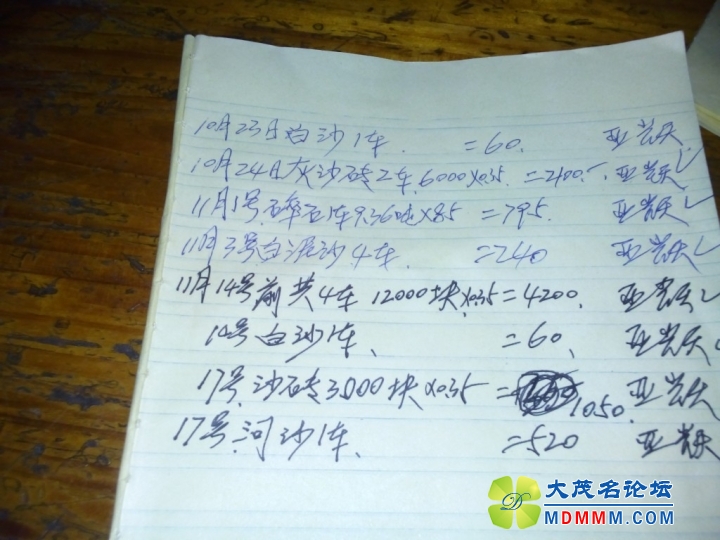 10月23日白沙1车 =60. 亚兴天
10月24日灰沙砖2车6000×0.35 =2100. 亚兴天
11月1号碎石1车9.36吨×85 =795. 亚兴天
11月3号白泥沙4车. =240 亚兴天
11月14号前共4车 12000块×0.35=4200. 亚兴天
10号白沙1车、 =60、 亚兴天
17号.沙砖3000块×0.35= 1050. 亚兴天
17号.河沙1车. =520 亚兴天
大茂名论坛
MDMMM.COM